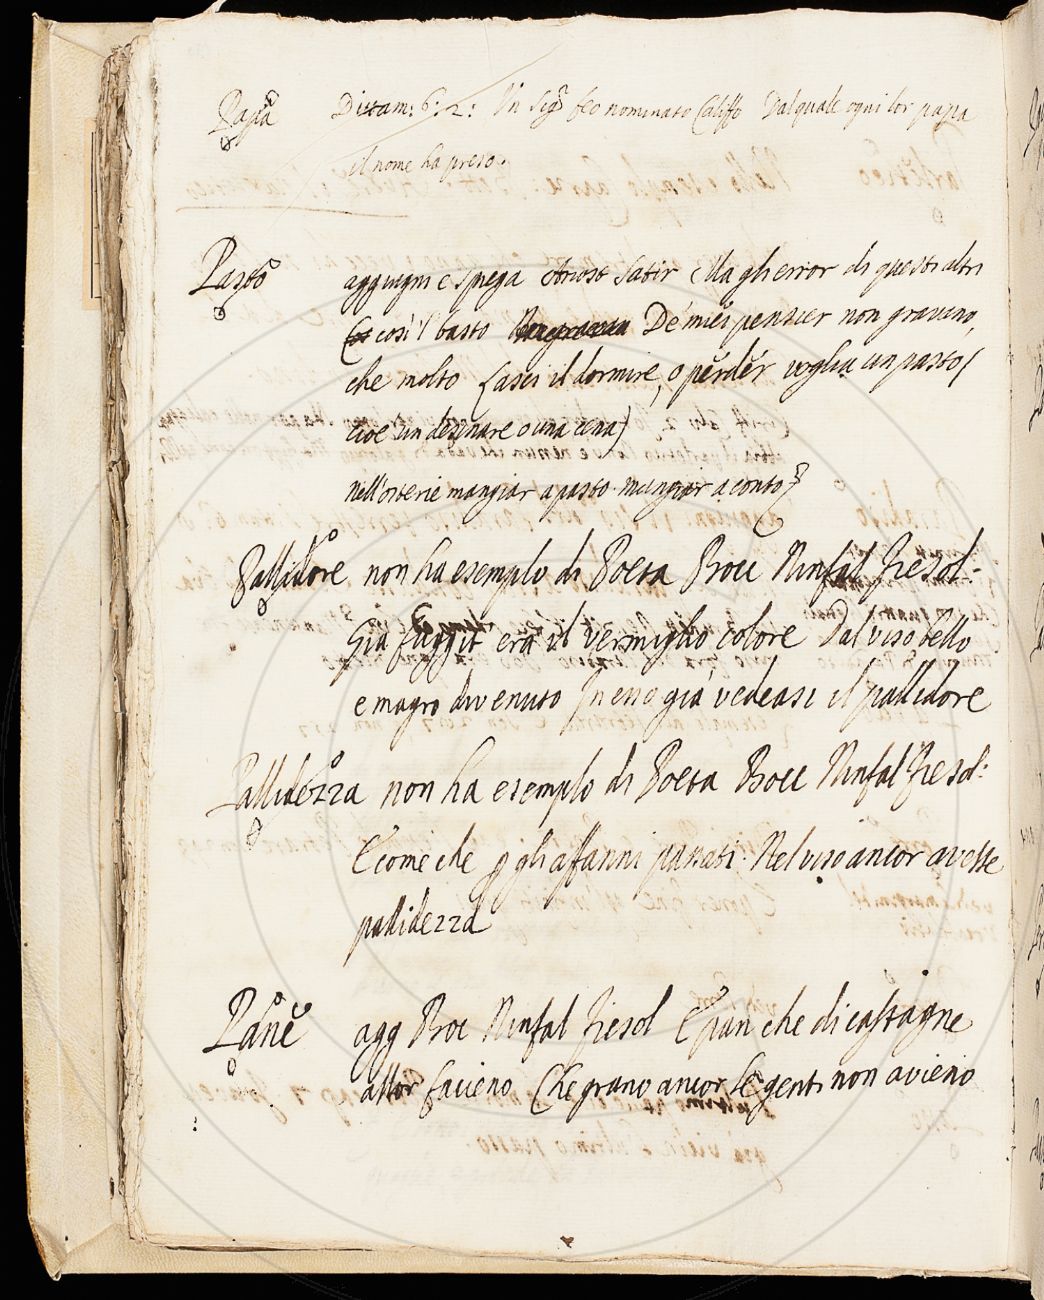 Papa Dittam: 6: 2: Un Sig.r feo nominato Califfo Dal quale ogni lor papa
il nome ha preso.
Pasto aggiugni e spega Ariost Satir Ma gli error di questi altri
così 'l basto De miei pensier non gravino,
che molto Lasci il dormire, o perder voglia un pasto (
cioè un desinare o una cena)
nell'osterie mangiar a pasto. mangiar a conto
Pallidore non ha esemplo di Poeta Bocc Ninfal Fiesol:
Gia fuggit era il vermiglio colore Dal viso bello
e magro divenuto In esso già vedeasi il pallidore
Pallidezza non ha esemplo di Poeta Bocc Ninfal Fiesol:
E come che p gli affanni passati. Nel viso ancor avesse
pallidezza
Pane agg Boc Ninfal Fiesol E pan che di castagne
allor facieno Che grano ancor le genti non avieno